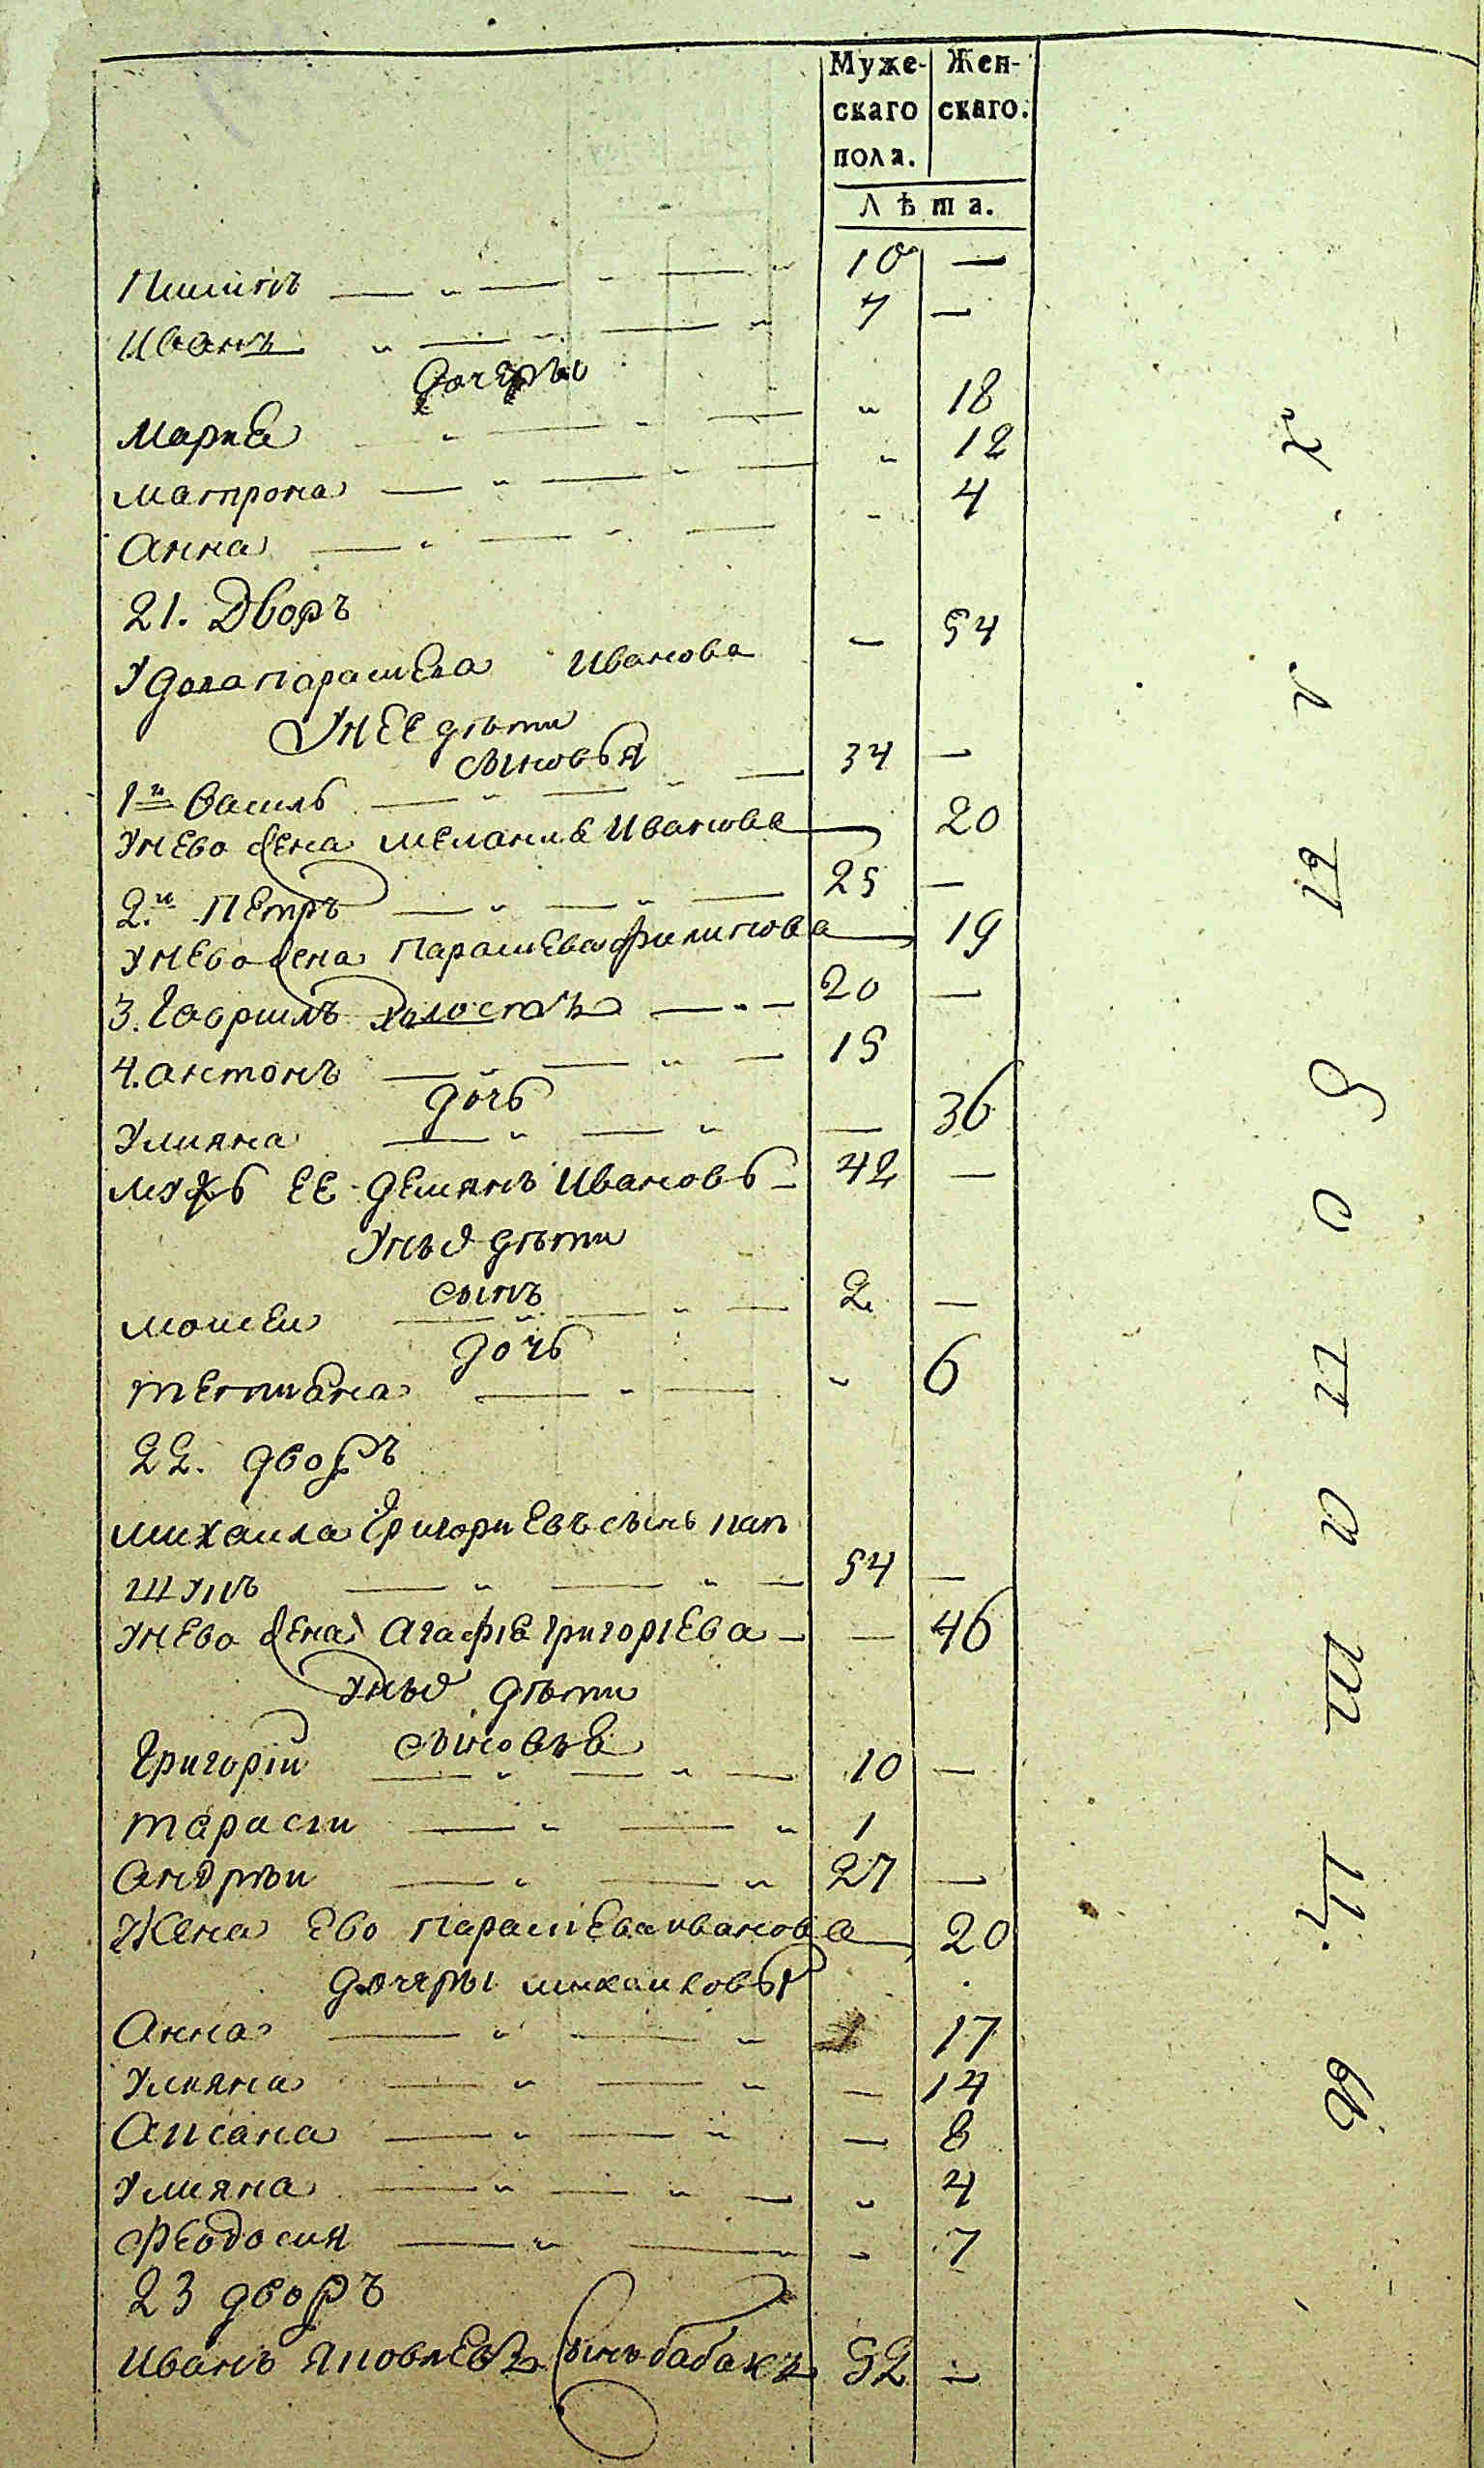 Муже- Жен-
скаго скаго.
пола.
Лѣта.
10 —
Иванъ 7 —
дочеры
Мариа 18
Матрона 12
Анна 4
21. Дворъ
Удова Парасцева Иванова — 54
У нее дѣти
сыновья
1й Василь 34 —
У нево жена Меланиа Иванова 20
2й Петръ 25 —
У нево жена Парасцева Филипова 19
3. Гаврилъ холостъ 20 —
4. Антонъ 15
дочь
Улияна — 36
Мужъ ее Демянъ Ивановъ 42 —
У ных дѣти
сынъ
Моисеи 2 —
дочь
Тетиана 6
22. дворъ
Михаила Григориевъ сынъ Пап
шукъ 54 —
У нево жена Агафиа Григориева — 46
У ных дѣти
сыновьа
Григорій 10 —
Тарасіи 1
Андрѣи 27 —
Жена ево Парасцева Иванова 20
дочеры Михаиловы
Анна 17
Улияна — 14
Аксана — 8
Улияна 4
Феодосия 7
23 дворъ
Иванъ Яковлевъ сынъ Бабакъ 52 —